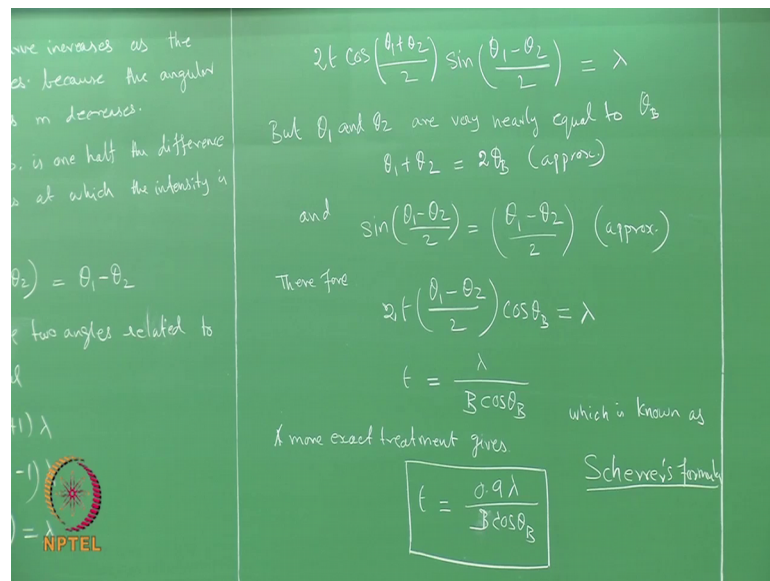 rve increases as the
es. because the angular
s m decreases.
. is one half the difference
s at which the intensity is
θ₂) = θ₁-θ₂
two angles related to
+1) λ
-1)
) = λ
NPTEL
2t cos(θ₁+θ₂/2) sin(θ₁-θ₂/2) = λ
But θ₁ and θ₂ are very nearly equal to θ_B
θ₁+θ₂ = 2θ_B (approx.)
and sin(θ₁-θ₂/2) = (θ₁-θ₂/2) (approx.)
There fore
2t(θ₁-θ₂/2) cosθ_B = λ
t = λ/B cosθ_B
which is known as
A more exact treatment gives.
Scherrer's formula
t = 0.9λ/B cosθ_B